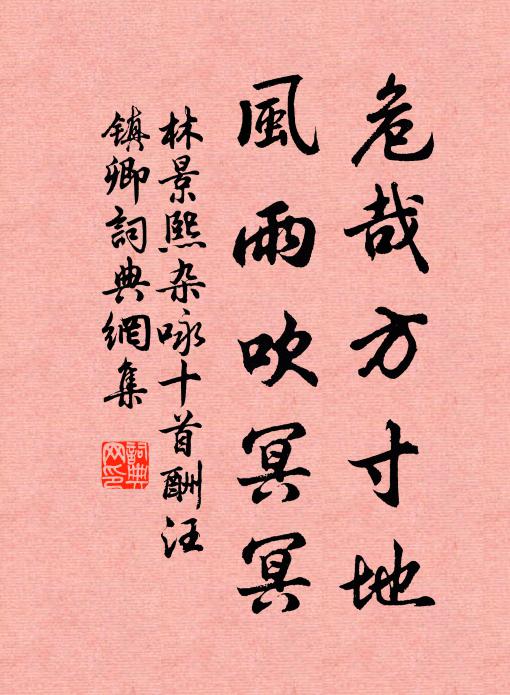 危哉方寸地
風雨吹冥冥
林景熙杂咏十首酬汪
鎮卿詞典網集
詞典
网印